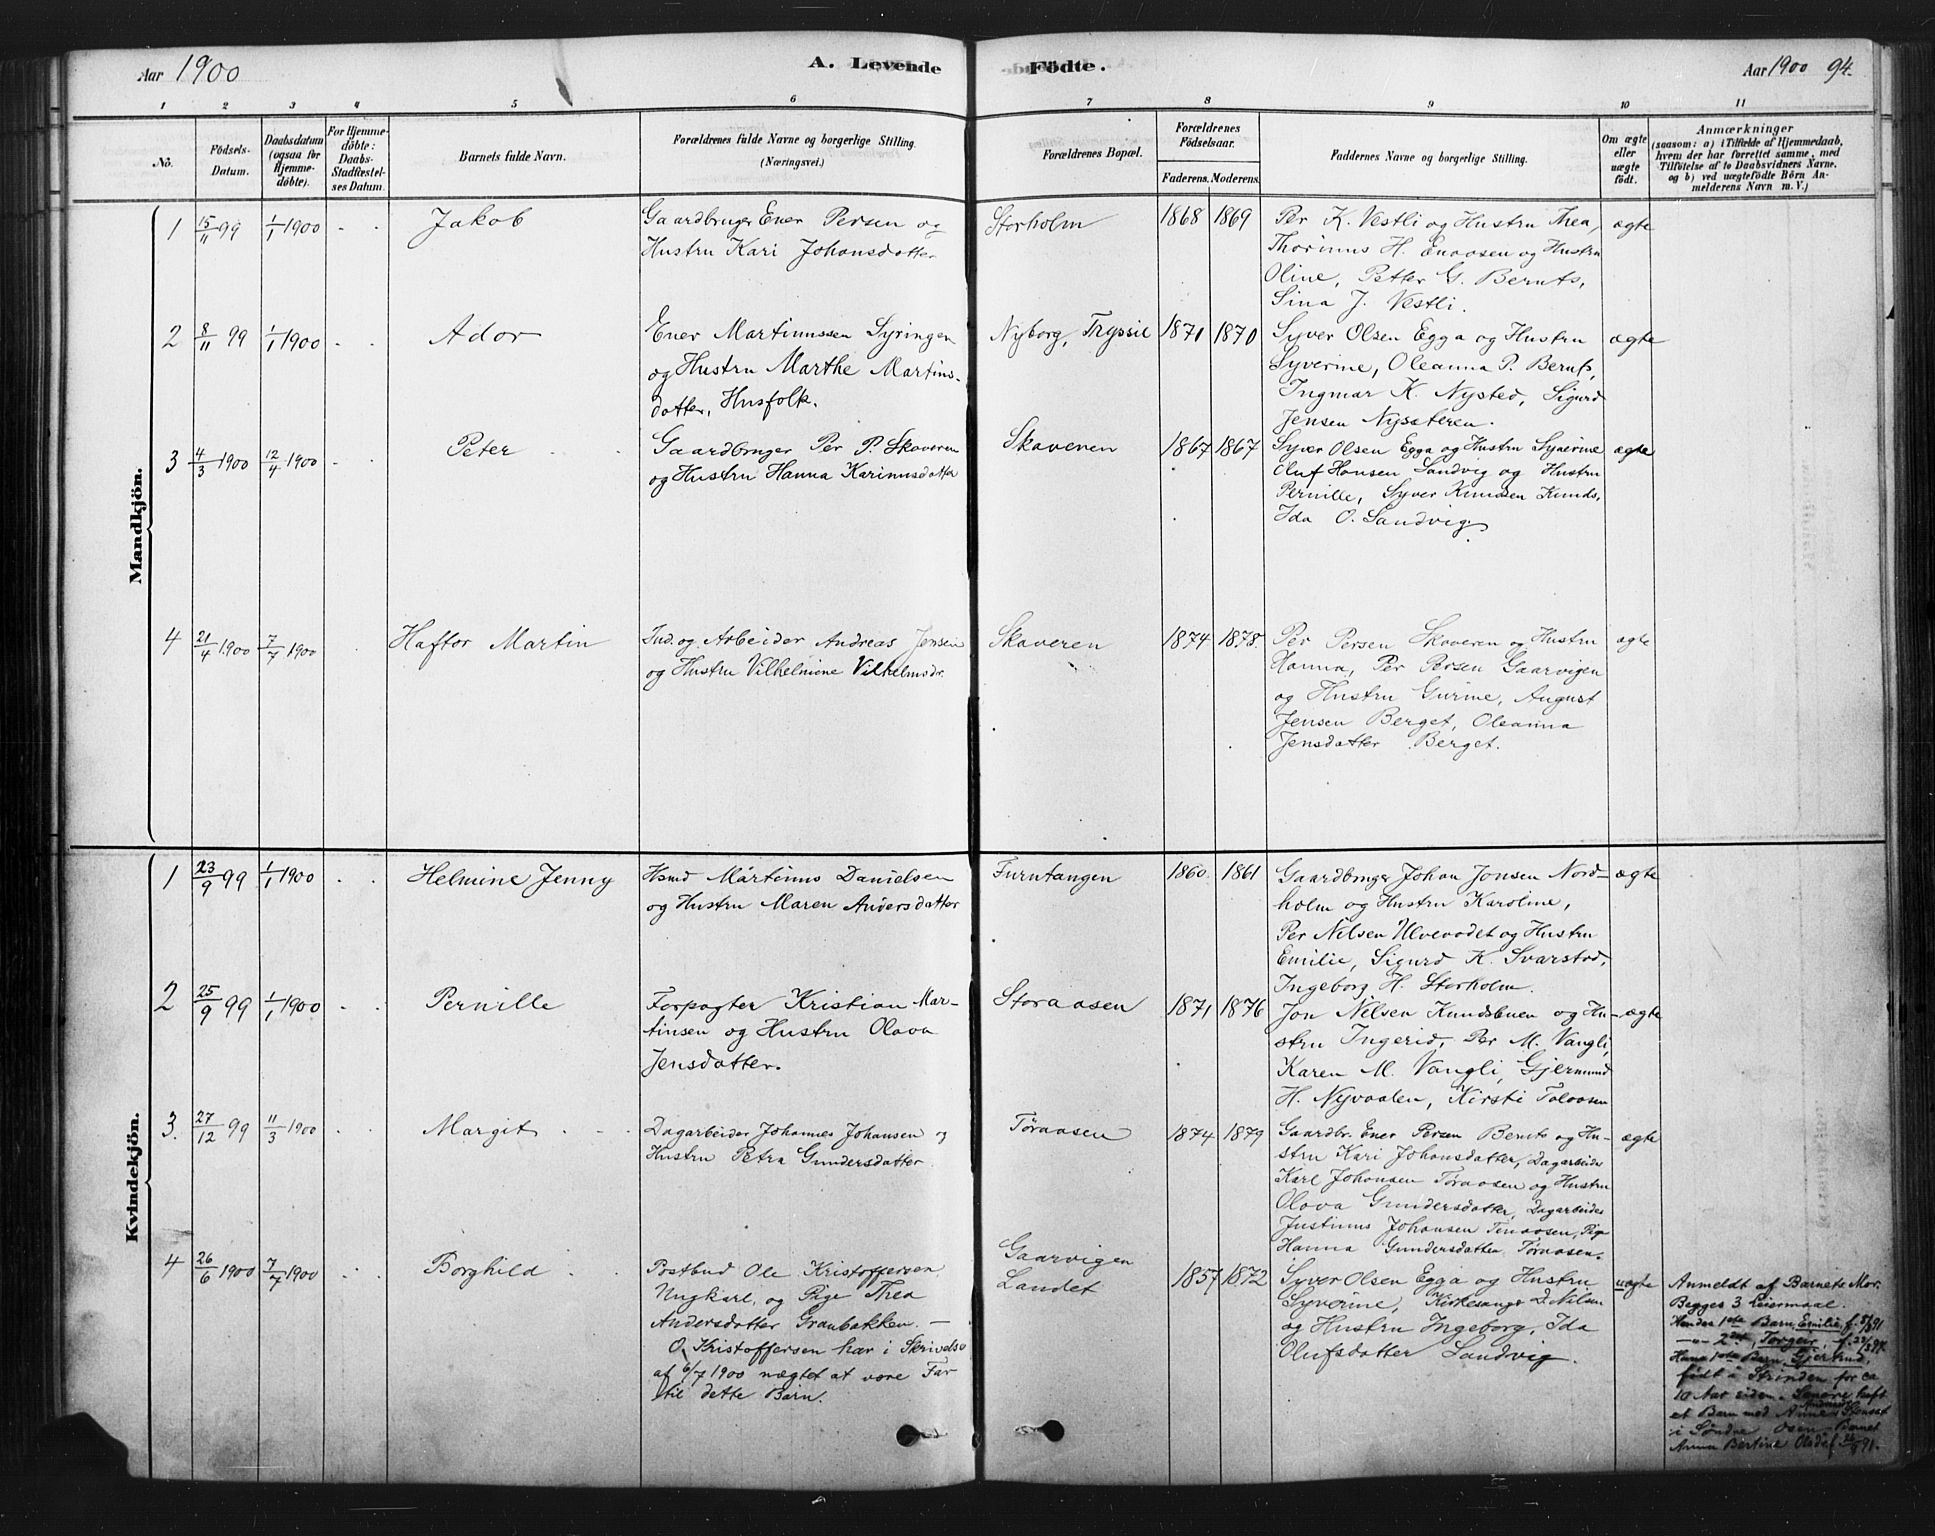 Aar 1900
A. Levende
Fødte.
Aar 1900 94.
1 2 3 4 5 6 7 8 9 10 11
No.
Födsels-
Datum.
Daabsdatum
(ogsaa for
Hjemme-
døbte).
For Hjemme-
döbte:
Daabs-
Stadfæstel-
ses Datum.
Barnets fulde Navn.
Forældrenes fulde Navne og borgerlige Stilling.
(Næringsvei.)
Forældrenes Bopæl.
Forældrenes
Fødselsaar.
Faderens. Moderens.
Faddernes Navne og borgerlige Stilling.
Om ægte
eller
uægte
födt.
Anmærkninger
(saasom: a) i Tilfælde af Hjemmedaab,
hvem der har forrettet samme, med
Tilföielse af to Daabsvidners Navne.
og b) ved uægtefödte Börn An-
melderens Navn m. V.)
Mandkjön.
1 15/11 99 1/1 1900 - - Jakob
Gaardbruger Ener Persen og
Hustru Kari Johansdatter
Storholm 1868 1869
Per K. Vestli og Hustru Thea,
Thorinus H. Enaasen og Hustru
Oline, Petter G. Bernts,
Sina J. Vestli.
ægte
2 8/11 99 1/1 1900 - - Ador
Ener Martinussen Syringen
og Hustru Marthe Martins-
datter, Husfolk.
Nyborg, Tryssil 1871 1870
Syver Olsen Egga og Hustru
Syverine, Oleanna P. Bernts,
Ingmar K. Nysted, Sigurd
Jensen Nysæteren.
ægte
3 4/3 1900 12/4 1900 - - Peter
Gaardbruger Per P. Skaveren
og Hustru Hanna Karinusdatter
Skaveren 1867 1867
Syver Olsen Egga og Hustru Syverine
Oluf Hansen Sandvig og Hustru
Pernille, Syver Knudsen Knuds,
Ida O. Sandvig
ægte
4 21/4 1900 7/7 1900 - - Haftor Martin
Ind. og Arbeider Andreas Jensen
og Hustru Vilhelmine Vilhelmsdr.
Skaveren 1874 1878.
Per Persen Skaveren og Hustru
Hanna, Per Persen Gaarvigen
og Hustru Gurine, August
Jensen Berget, Oleanna
Jensdatter Berget.
ægte
Kvindekjön.
1 23/9 99 1/1 1900 - - Helmine Jenny
Hsmd Martinus Danielsen
og Hustru Maren Andersdatter
Furutangen 1860. 1861
Gaardbruger Johan Jonsen Nord-
holm og Hustru Karoline,
Per Nilsen Ulvevadet og Hustru
Emilie, Sigurd K. Svarstad,
Ingeborg H. Storholm.
ægte
2 25/9 99 1/1 1900 - - Pernille
Forpagter Kristian Mar-
tinsen og Hustru Olava
Jensdatter.
Storaasen 1871 1876
Jon Nilsen Knudsbuen og Hu-
stru Ingerid, Per M. Vangli,
Karen M. Vangli, Gjermund
H. Nyvaalen, Kirsti Talaasen
ægte
3. 27/12 99 11/3 1900 - - Margit
Dagarbeider Johannes Johansen og
Hustru Petra Gundersdatter
Tøraasen 1874 1879
Gaardbr. Ener Persen Bernts og Hu-
stru Kari Johansdatter, Dagarbeider
Karl Johansen Tøraasen og Hustru
Olava Gundersdatter, Dagarbeider
Justinus Johansen Tøraasen, Pige
Hanna Gundersdatter Tøraasen.
ægte
4 26/6 1900 7/7 1900 - - Borghild
Postbud Ole Kristoffersen,
Ungkarl, og Pige Thea
Andersdatter Granbakken. —
O. Kristoffersen har i Skrivelse
af 6/7 1900 nægtet at vore Far
til dette Barn.
Gaarvigen
Landet
1857 1872
Syver Olsen Egga og Hustru
Syverine, Kirkesanger D. Nilsen
og Hustru Ingeborg, Ida
Olufsdatter Sandvig.
uægte
Anmeldt af Barnets Mor.
Begges 3 Leiermaal.
Hendes 1ste Barn, Emilie, f. 91
—"— 2det, Torgeir, f.
Hans 1ste Barn, Gjertrud,
født i Strinden for ca
10 Aar siden. Senere haft
et Barn med Anne
i Søndre Osen. Barnet
Anna Bertine Olsdr. 91.